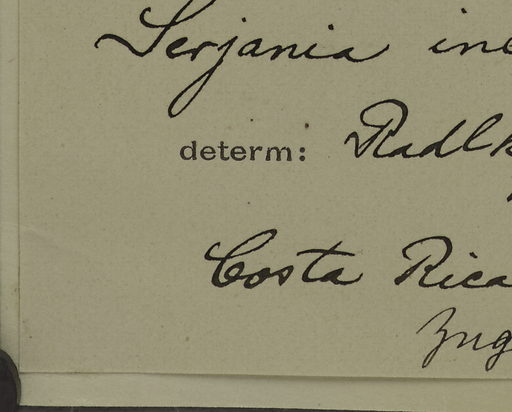 Serjania ine
determ: Radlk
Costa Rica
Zug